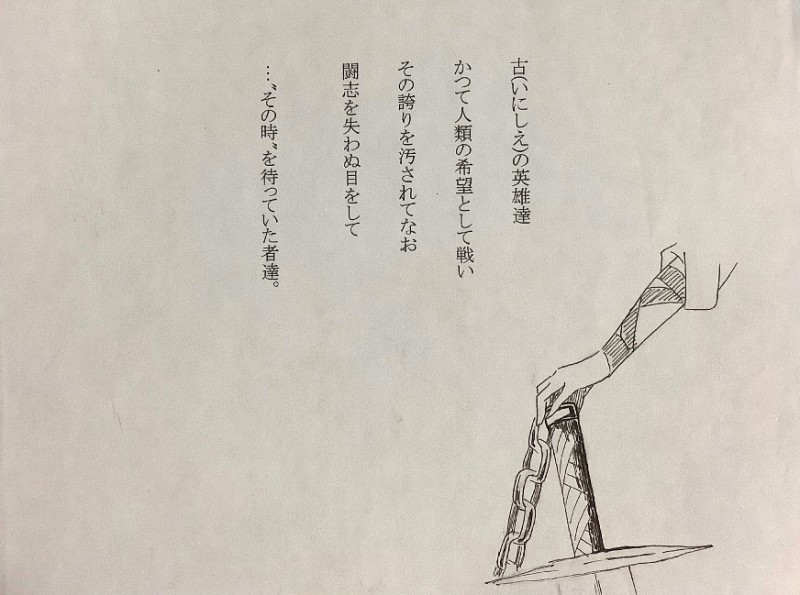 古(いにしえ)の英雄達
かつて人類の希望として戦い
その誇りを汚されてなお
闘志を失わぬ目をして
…〝その時〟を待っていた者達。